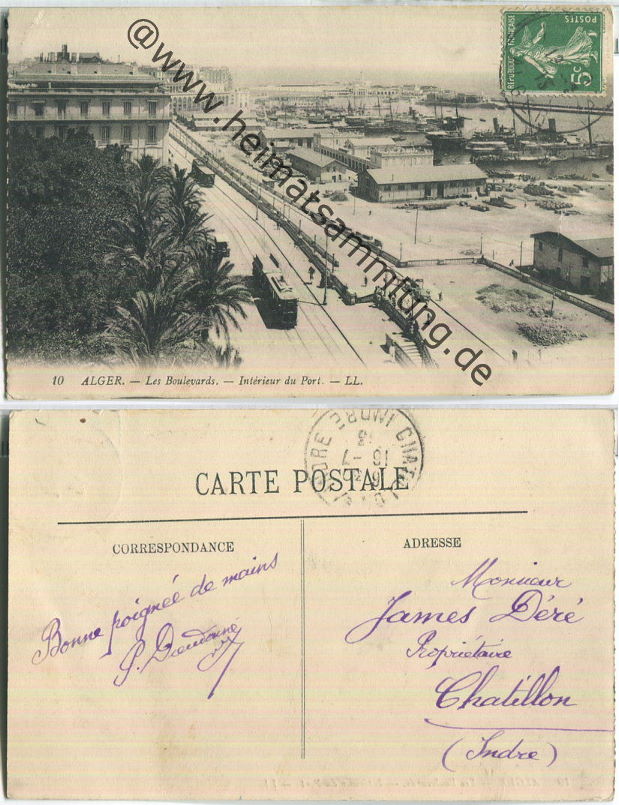 @www.heimatsammlung.de
POSTES
REPUBLIQUE FRANÇAISE
5c
10 ALGER. — Les Boulevards. — Intérieur du Port. — LL.
INDRE
CARTE POSTALE
CORRESPONDANCE
Bonne poignée de mains
ADRESSE
Monsieur
James Déré
Propriétaire
Chatillon
(Indre)